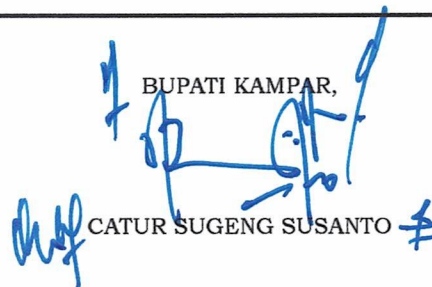 BUPATI KAMPAR,
CATUR SUGENG SUSANTO